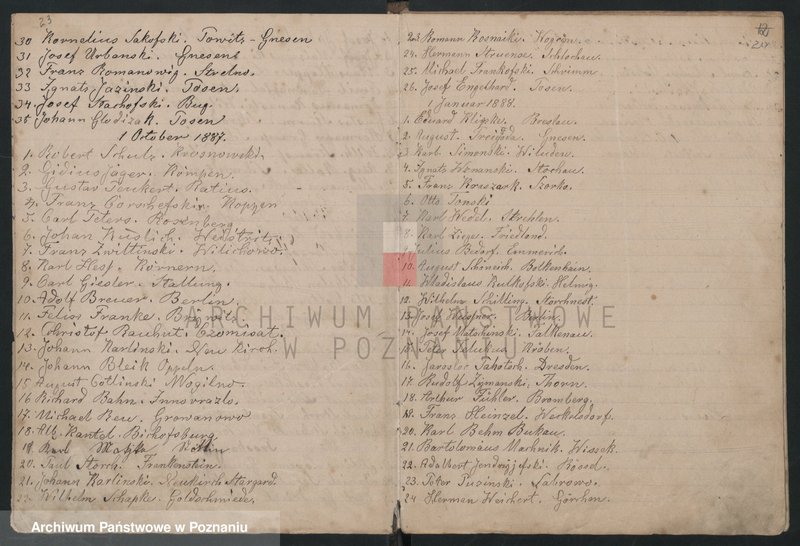 23
30 Kornelius Sakofski. Towitz - Gnesen
31 Josef Urbanski. Gnesen
32 Franz Romanowig. Strelno.
33 Ignatz Jazinski. Posen.
34. Josef Stachofski. Bug
35 Johann Glodizak. Posen
1 Otober 1887.
1. Robert Schulz. Krosnowski.
2. Gidius Jäger. Kömpen.
3. Gustav Teukert. Ratius.
4. Franz Gorschefski. Koppen
5. Carl Peters. Rosenberg
6. Johan Kuslich.
7. Franz Zwittinski. Wilichowo.
8. Karl Hesp. Körnern.
9. Carl Giesler. Stallung.
10. Adolf Breuer. Berlin.
11. Felios Franke. Brinnitz
12. Christof Rauhut. Czomisat.
13. Johann Karlinski. Neukirch.
14. Johann Bleik Oppeln.
15 August Cotlinski Mogilno.
16 Richard Bahn. Innowrazlo.
17. Michael Beu. Growanowo
18. Alb. Kantel. Bischofsburg.
19. Karl Matzka
20. Paul Storch. Frankenstein.
21. Johann Karlinski. Neukirch Stargard.
22. Wilhelm Schapke. Goldschmiede.
12
23 Romann Rosnaiki.
24. Hermann Struense. Schlochau.
25. Michael Frankofski. Schrimm
26. Josef Engelhard. Posen.
1 Januar 1888.
1. Eduard Klipke. Breslau.
2. August. Gnesen.
3. Karl Simonski. Wiluden.
4. Ignatz Womanski. Stochau.
5. Franz Kaszark. Szorka.
6. Otto Tonski
7. Karl Wedel. Strehlen.
8. Karl Zigel. Friedland.
9. Julius Bedorf. Emmerich.
10. August Schinsich. Bolkenhain.
11. Wladislaus Rutkofski. Helmig.
12. Wilhelm Schilling. Storchnest.
13. Josef Wagner. Berlin.
14. Josef Matschinski. Falkenau.
15. Peter Kröben.
16. Jaroslor Takotsch. Dresden.
17. Rudolf Zymanski, Thorn.
18. Arthur Fühler. Bromberg.
19. Franz Heinzel. Weckelsdorf.
20. Karl Behm Bukau.
21. Bartolomäus Machnik. Wissek.
22. Adalbert Jendrzjefski. Kossel.
23. Peter Puzinski. Zabrowo.
24 Herman Weichert. Görchen.
ARCHIWUM PAŃSTWOWE
W POZNANIU
Archiwum Państwowe w Poznaniu